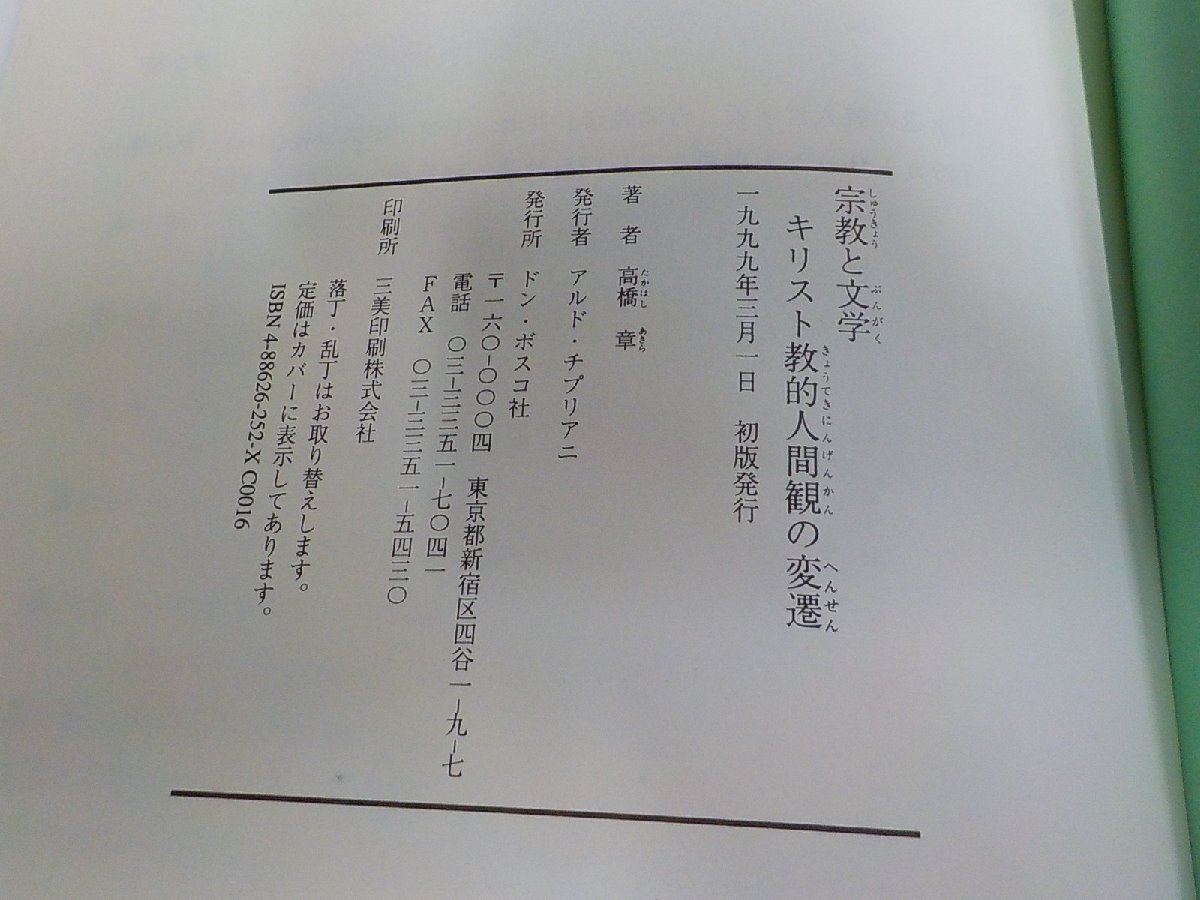 宗教と文学
しゅうきょう ぶんがく
キリスト教的人間観の変遷
きょうてきにんげんかん へんせん
一九九九年三月一日 初版発行
著者 高橋 章
たかはし あきら
発行者 アルド・チプリアニ
発行所 ドン・ボスコ社
〒一六〇-〇〇〇四 東京都新宿区四谷一-九-七
電話 〇三-三三五一-七〇四一
FAX 〇三-三三五一-五四三〇
印刷所 三美印刷株式会社
落丁・乱丁はお取り替えします。
定価はカバーに表示してあります。
ISBN4-88626-252-X C0016